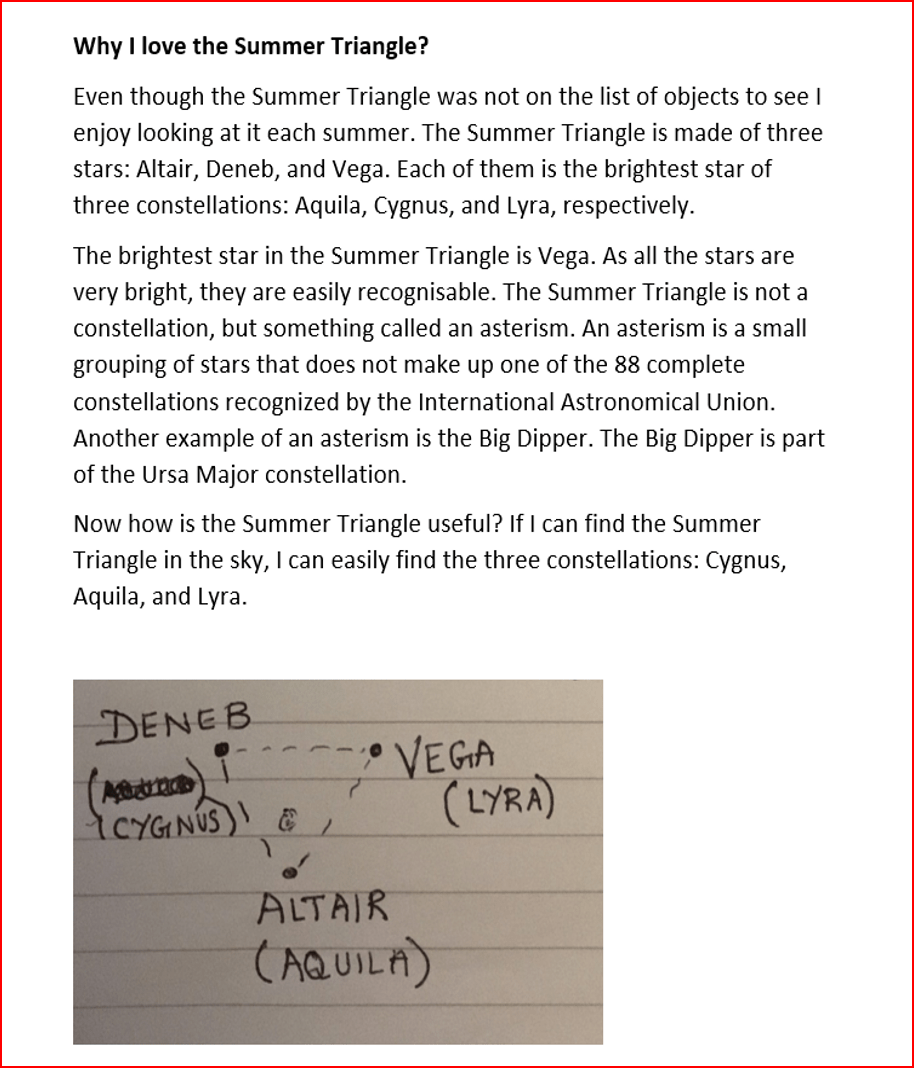 Why I love the Summer Triangle?
Even though the Summer Triangle was not on the list of objects to see I
enjoy looking at it each summer. The Summer Triangle is made of three
stars: Altair, Deneb, and Vega. Each of them is the brightest star of
three constellations: Aquila, Cygnus, and Lyra, respectively.
The brightest star in the Summer Triangle is Vega. As all the stars are
very bright, they are easily recognisable. The Summer Triangle is not a
constellation, but something called an asterism. An asterism is a small
grouping of stars that does not make up one of the 88 complete
constellations recognized by the International Astronomical Union.
Another example of an asterism is the Big Dipper. The Big Dipper is part
of the Ursa Major constellation.
Now how is the Summer Triangle useful? If I can find the Summer
Triangle in the sky, I can easily find the three constellations: Cygnus,
Aquila, and Lyra.
DENEB
VEGA
(LYRA)
(CYGNUS)
ALTAIR
(AQUILA)